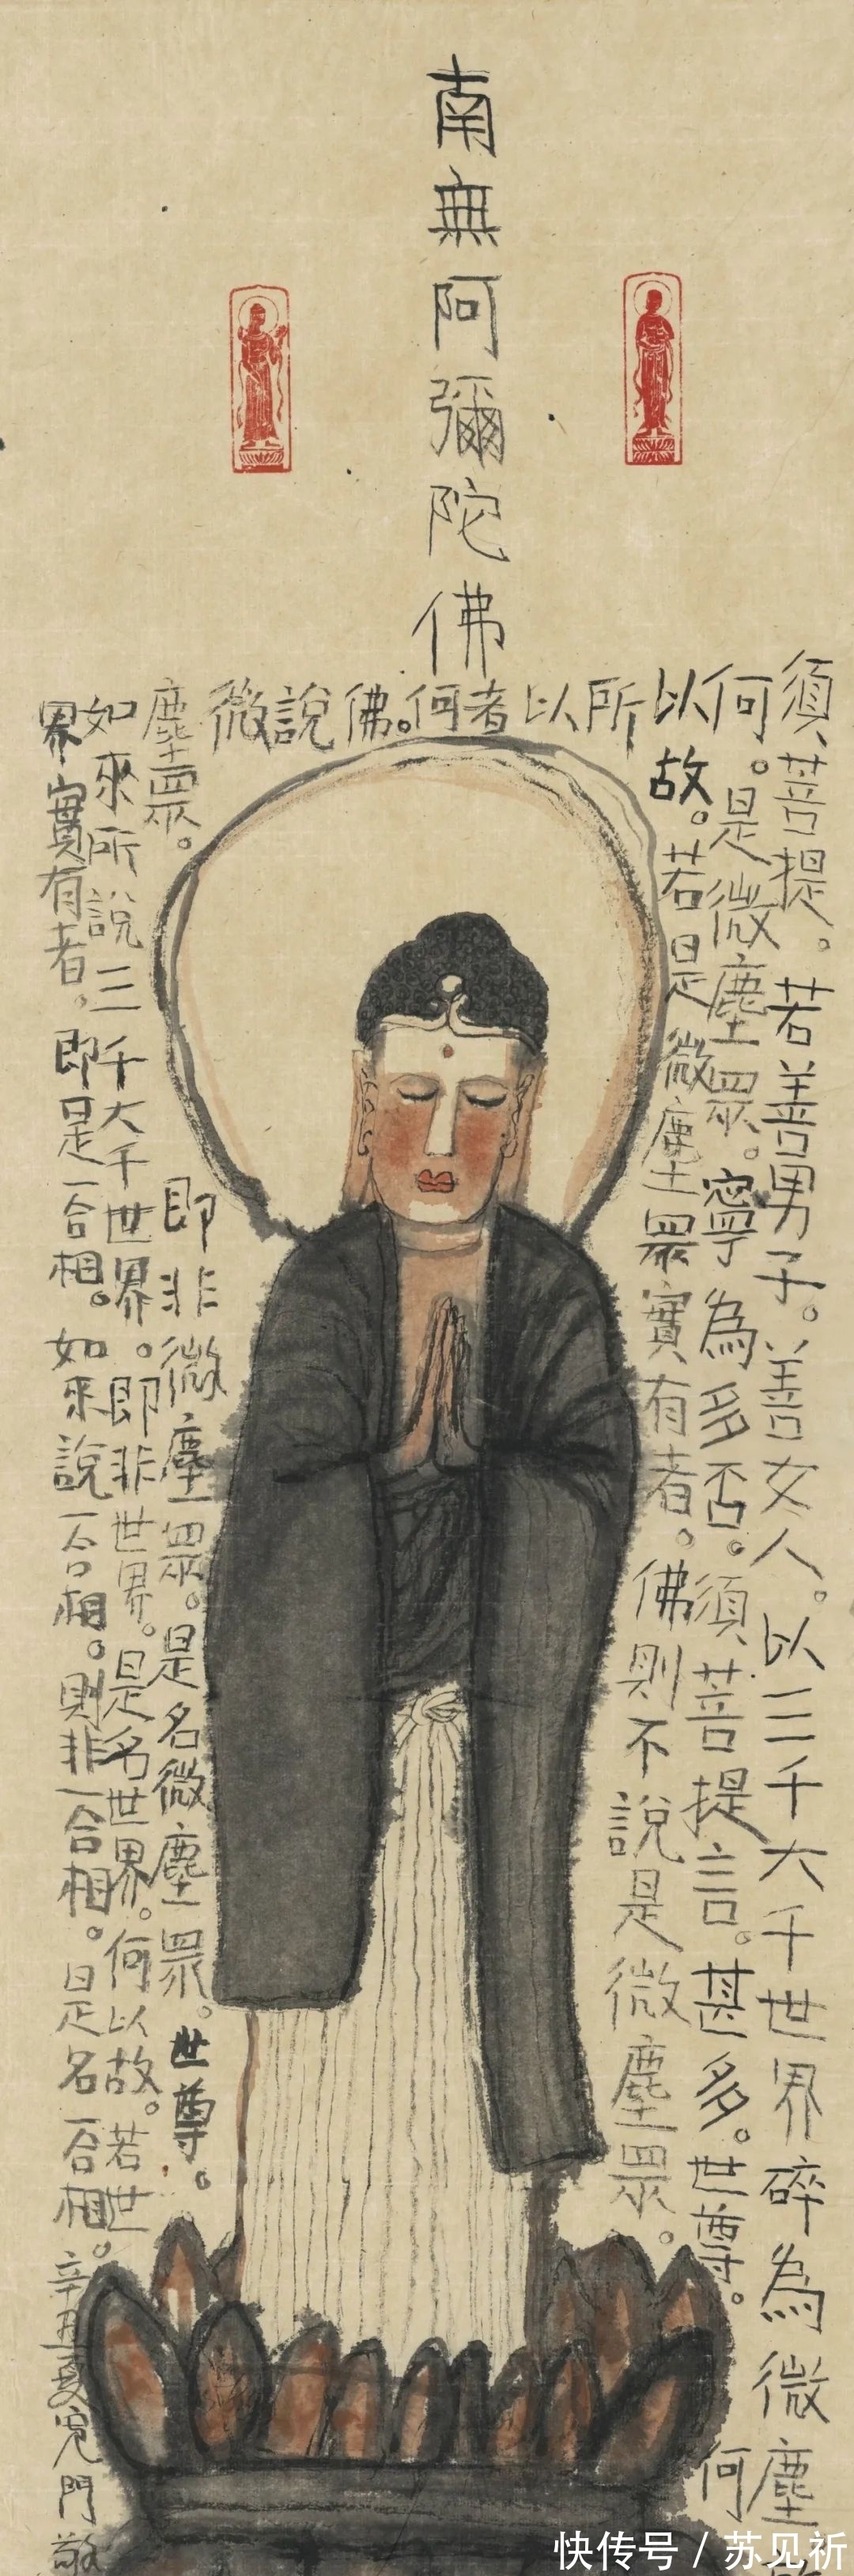 南無阿彌陀佛
須菩提。若善男子。善女人。以三千大千世界碎為微塵
何。是微塵眾。寧為多否。須菩提言。甚多。世尊。何
以故。若是微塵眾實有者。佛則不說是微塵眾。
所以者何。佛說微
塵眾。
即非微塵眾。是名微塵眾。世尊。
如來所說三千大千世界。即非世界。是名世界。何以故。若世
界實有者。即是一合相。如來說一合相。則非一合相。是名一合相。辛丑夏門敬
快传号 / 苏见祈